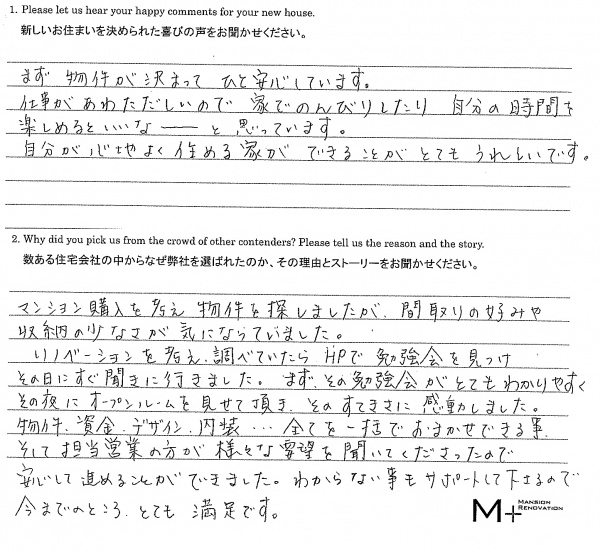 1. Please let us hear your happy comments for your new house.
新しいお住まいを決められた喜びの声をお聞かせください。
まず 物件が決まって ひと安心しています。
仕事があわただしいので 家でのんびりしたり 自分の時間を
楽しめるといいな ー と 思っています。
自分が心地よく住める家が できることが とても うれしいです。
2. Why did you pick us from the crowd of other contenders? Please tell us the reason and the story.
数ある住宅会社の中からなぜ弊社を選ばれたのか、その理由とストーリーをお聞かせください。
マンション購入を考え 物件を探しましたが、間取りの好みや
収納の少なさが気になっていました。
リノベーションを考え、調べていたら HPで勉強会を見つけ
その日にすぐ聞きに行きました。まず、その勉強会がとてもわかりやすく
その夜にオープンルームを見せて頂き、そのすてきさに感動しました。
物件、資金、デザイン、内装…全てを一括でおまかせできる事、
そして担当営業の方が様々な要望を聞いてくださったので
安心して進めることができました。わからない事もサポートして下さるので
今までのところ、とても 満足です。
M+ MANSION RENOVATION